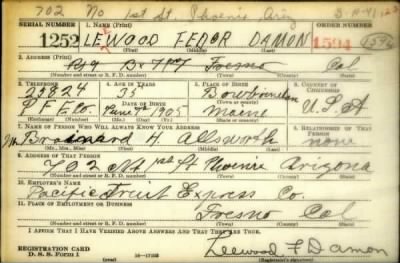 702 No 1st St. Phoenix, Ariz
SERIAL NUMBER 1. NAME (Print) ORDER NUMBER
1252 LEWOOD FEDOR DAMON 1594
(First) (Middle) (Last)
2. ADDRESS (Print)
Fresno Cal
(Number and street or R. F. D. number) (Town) (County) (State)
3. TELEPHONE 4. AGE IN YEARS 5. PLACE OF BIRTH 6. COUNTRY OF CITIZENSHIP
23824 35 Bowdoinham U.S.A
P F E Co. DATE OF BIRTH (Town or county)
June 7th 1905 Maine
(Exchange) (Number) (Mo.) (Day) (Yr.) (State or country)
7. NAME OF PERSON WHO WILL ALWAYS KNOW YOUR ADDRESS 8. RELATIONSHIP OF THAT PERSON
H Allsworth none
(Mr., Mrs., Miss) (First) (Middle) (Last)
9. ADDRESS OF THAT PERSON
702 No 1st St Phoenix Arizona
(Number and street or R. F. D. number) (Town) (County) (State)
10. EMPLOYER'S NAME
Pacific Fruit Express Co.
11. PLACE OF EMPLOYMENT OR BUSINESS
Fresno Cal
(Number and street or R. F. D. number) (Town) (County) (State)
I AFFIRM THAT I HAVE VERIFIED ABOVE ANSWERS AND THAT THEY ARE TRUE.
REGISTRATION CARD
D. S. S. Form 1
Leewood F Damon